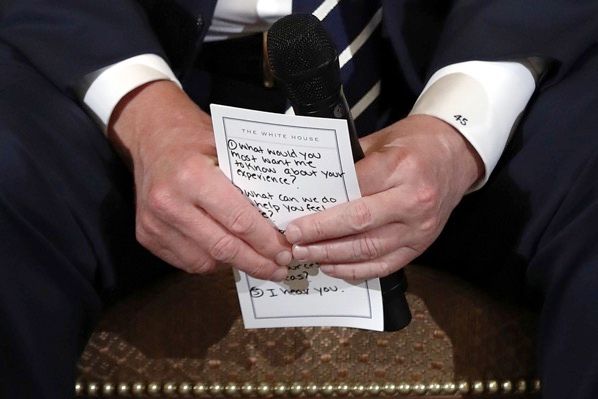 THE WHITE HOUSE
① What would you
most want me
to know about your
experience?
what can we do
help you feel
⑤ I hear you.
45